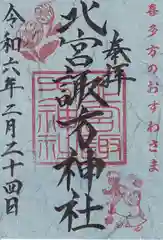 喜多方のおすわさま
奉拝
北宮諏方神社
令和六年二月二十四日